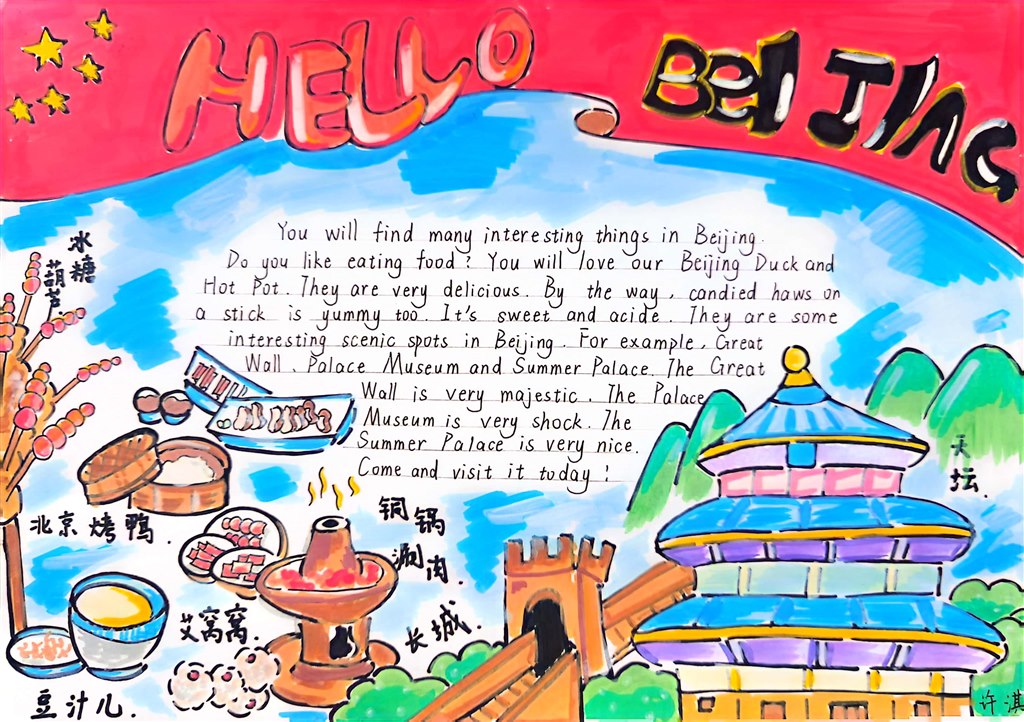 HELLO
BeIJIng
冰糖
葫芦
You will find many interesting things in Beijing.
Do you like eating food? You will love our Beijing Duck and
Hot Pot. They are very delicious. By the way, candied haws on
a stick is yummy too. It's sweet and acide. They are some
interesting scenic spots in Beijing. For example, Great
Wall、Palace Museum and Summer Palace. The Great
Wall is very majestic. The Palace
Museum is very shock. The
Summer Palace is very nice.
Come and visit it today!
天坛.
北京烤鸭.
铜锅
涮肉.
艾窝窝.
长城.
豆汁儿.
许淇